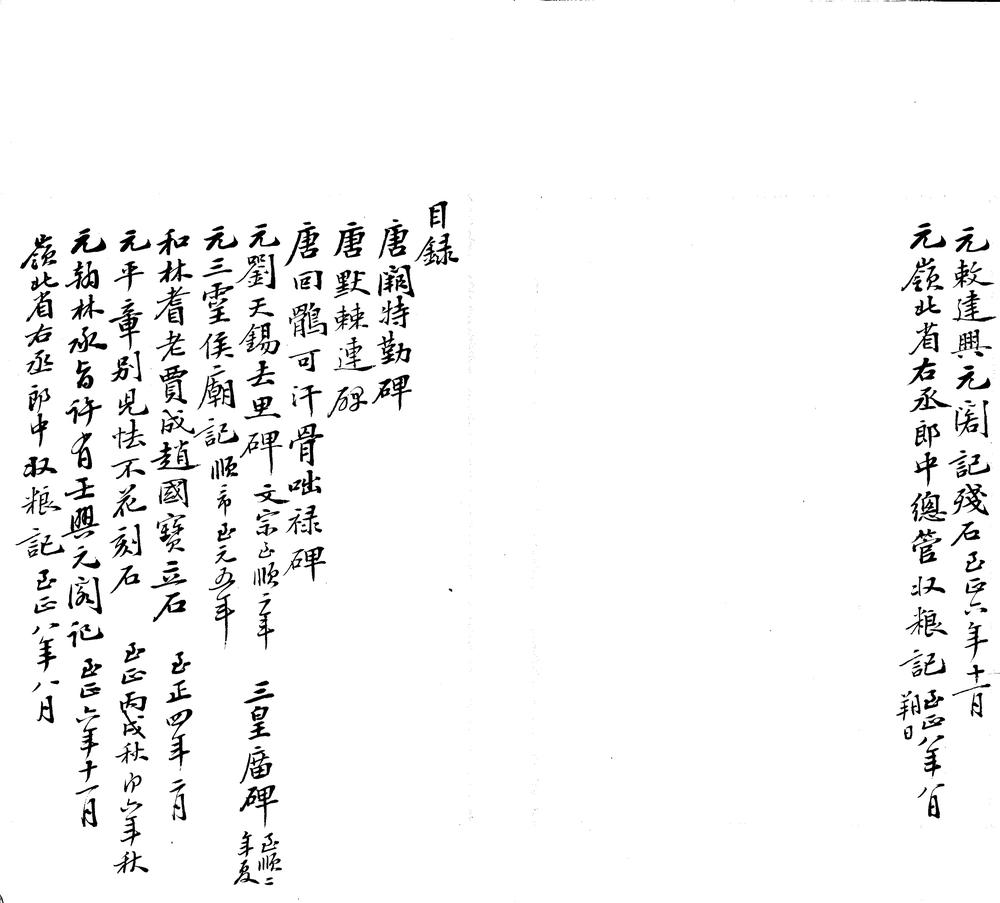 元敕建興元閣記殘石至正六年十一月
元嶺北省右丞郎中總管収粮記至正八年八月
朔日
目錄
唐闕特勤碑
唐默棘連碑
唐回鶻可汗骨咄禄碑
元劉天錫去思碑 文宗至順二年 三皇廟碑 至順二年夏
元三靈侯廟記順帝至元五年
和林耆老賈成趙國寶立石 至正四年二月
元平章別児怯不花刻石 至正丙戌秋即六年秋
元翰林承旨許有壬興元閣記 至正六年十一月
嶺北省右丞郎中収粮記 至正八年八月